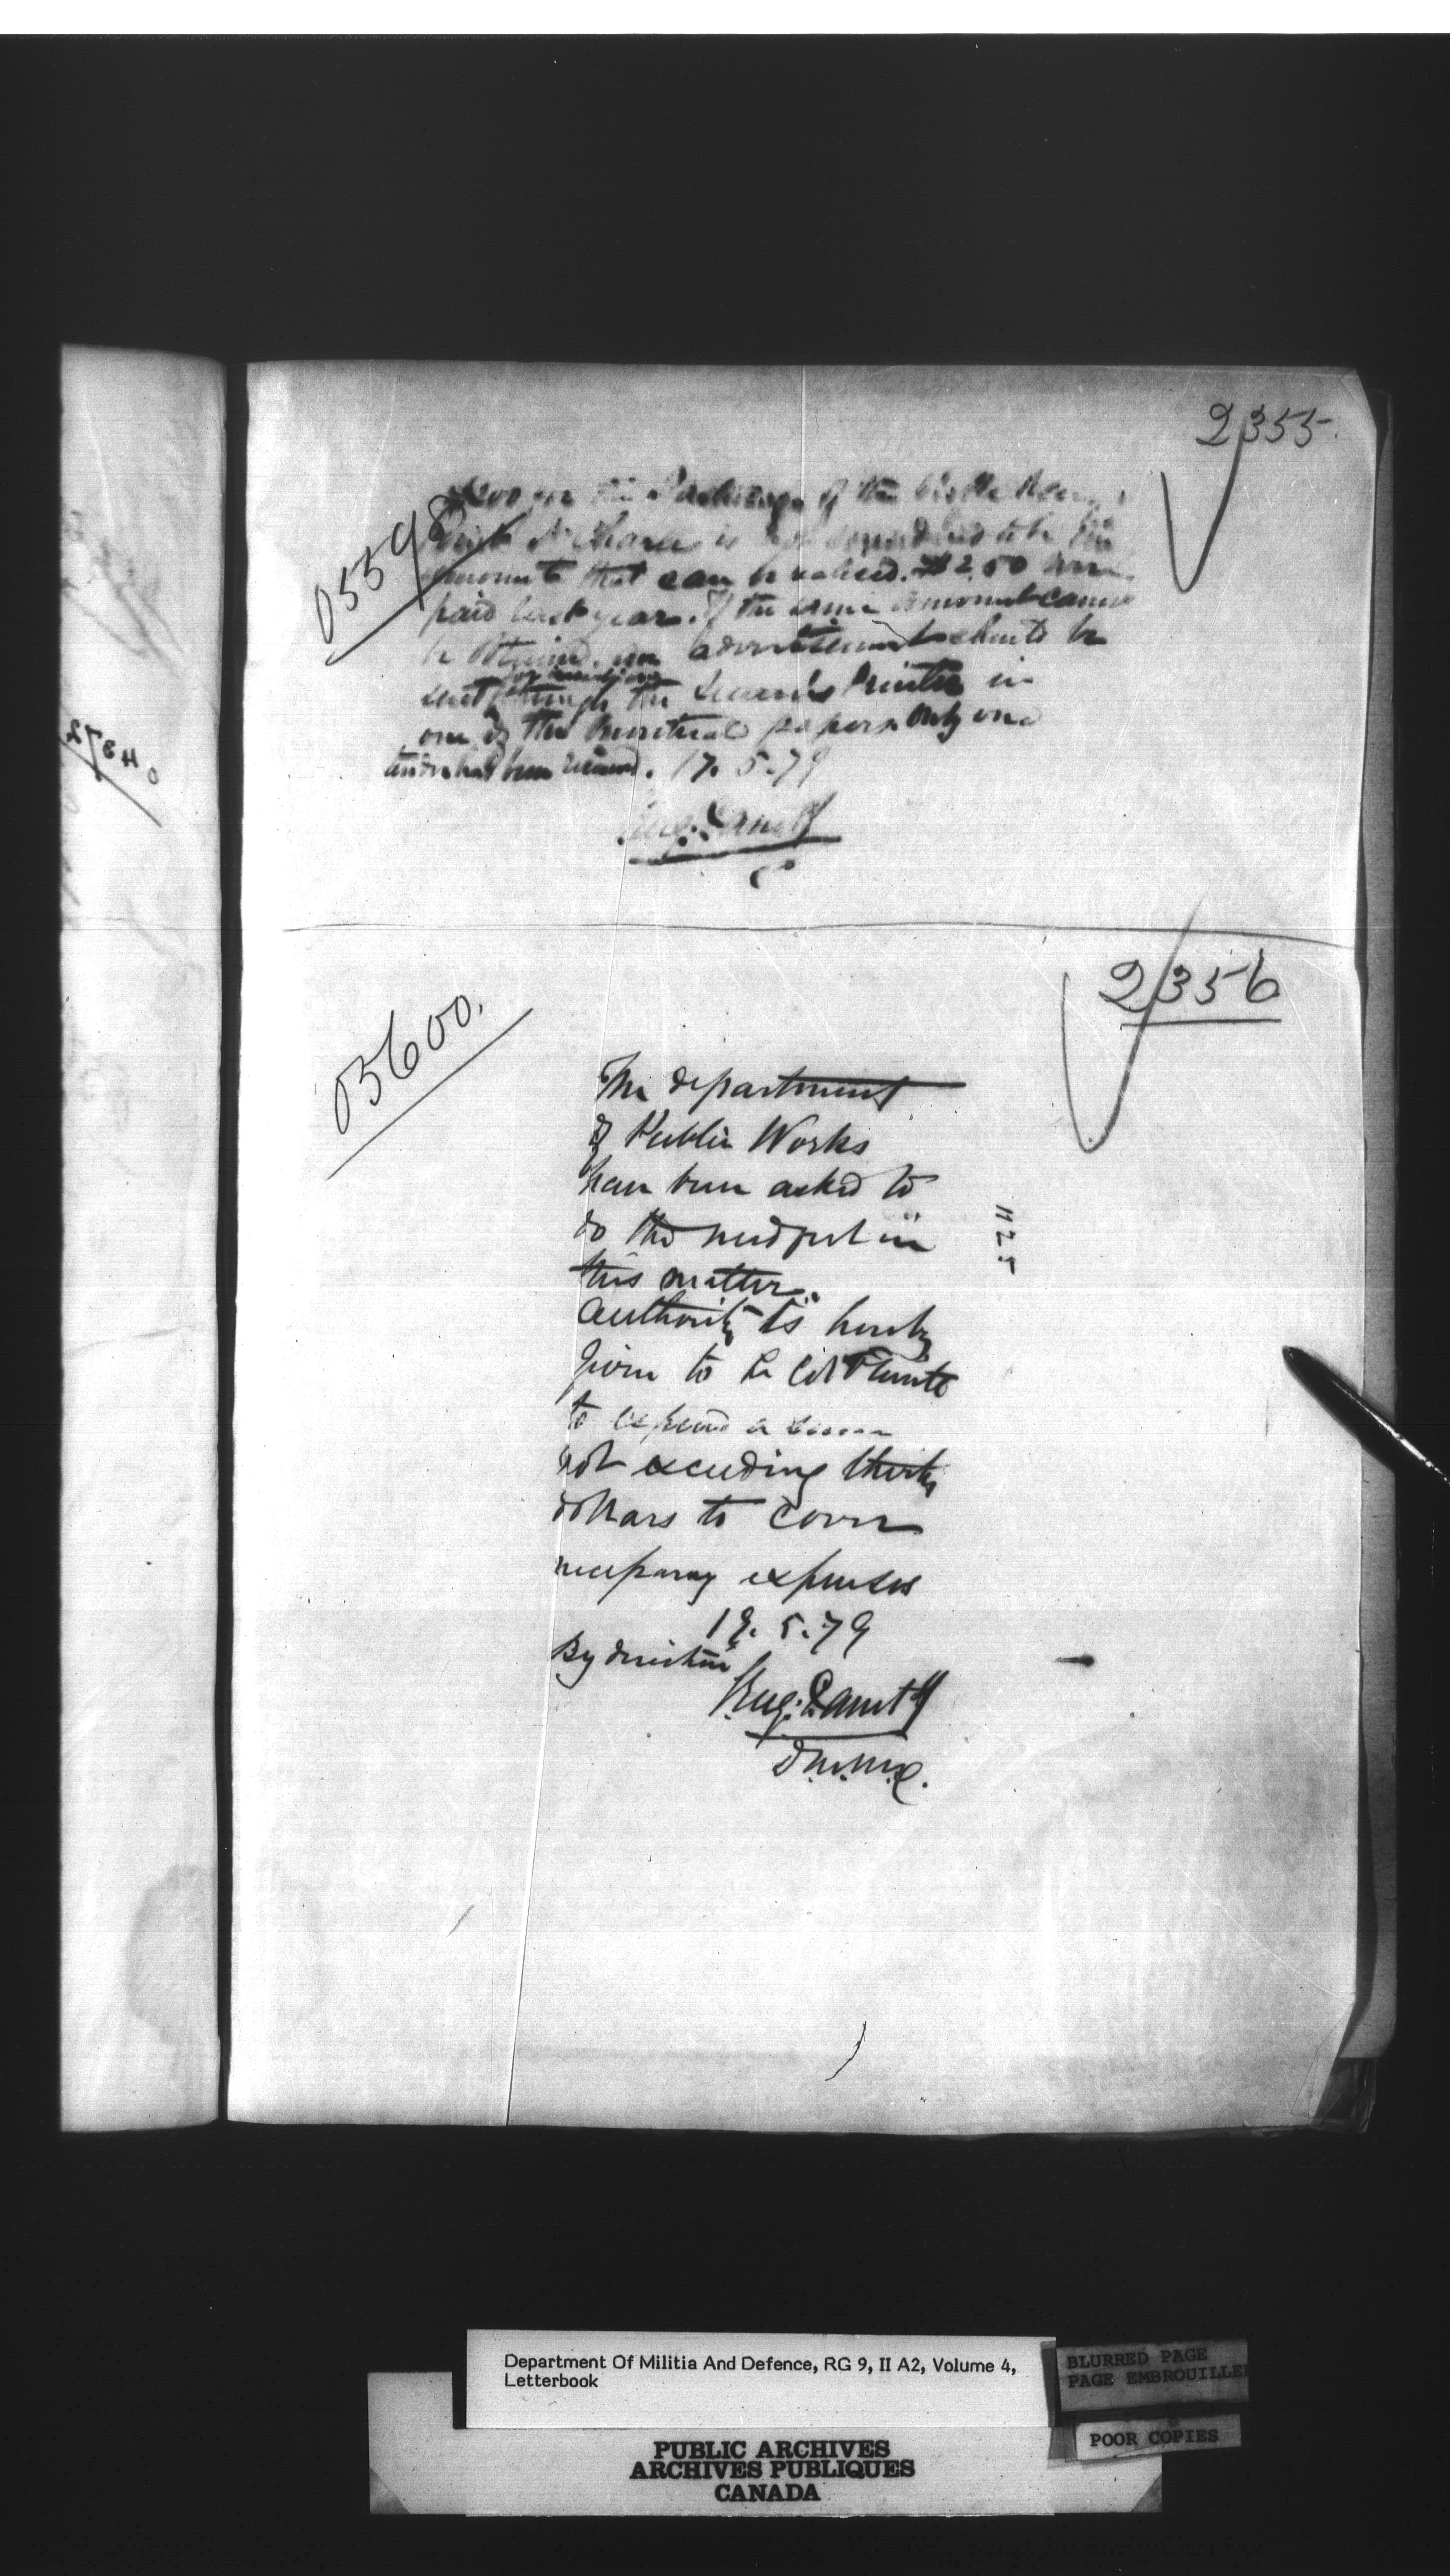 2355.
05598
$200 for the Pasturage of the
Point St Charles is not considered to be the
amount that can be realised. $250 were
paid last year. If the same amount cannot
be obtained, an advertisement should be
for insertion
sent through the Queen's Printer in
one of the Montreal papers. Only one
tender has been received. 17. 5. 79
Eug. Panet
2356
05600.
The department
of Public Works
have been asked to
do the needful in
this matter.
Authority is hereby
given to Lt Col
to expend a sum
not exceeding thirty
dollars to cover
necessary expenses
19. 5. 79
By direction
Eug. Panet
D.M.M.D.
1125
04372
Department Of Militia And Defence, RG 9, II A2, Volume 4,
Letterbook
BLURRED PAGE
PAGE EMBROUILLE
POOR COPIES
PUBLIC ARCHIVES
ARCHIVES PUBLIQUES
CANADA